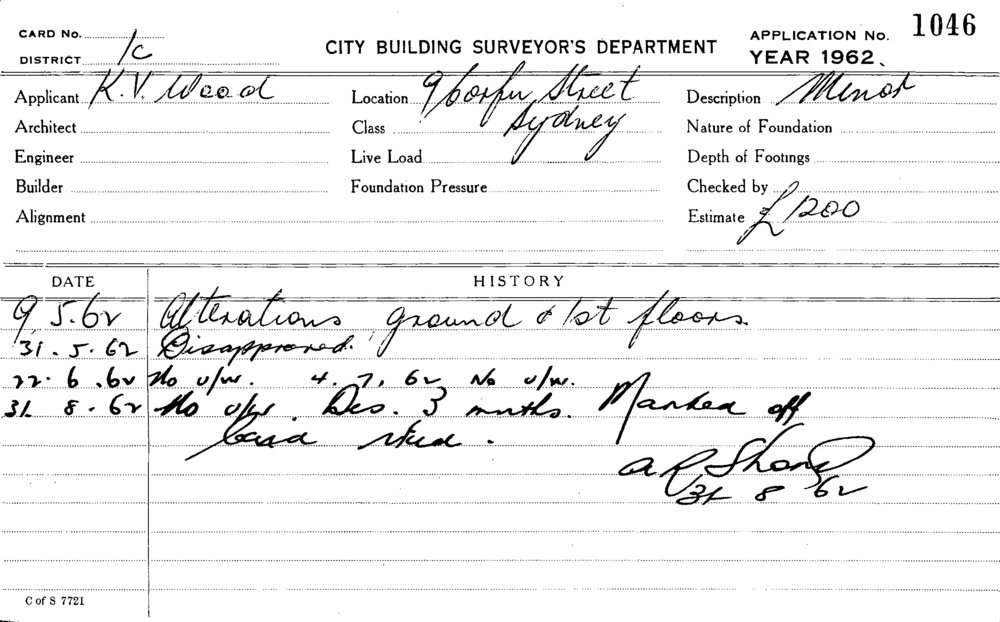 CARD No.
APPLICATION No. 1046
DISTRICT 1c
CITY BUILDING SURVEYOR'S DEPARTMENT
YEAR 1962.
Applicant K.V. Wood
Location 9 Corfu Street
Sydney
Description Minor
Architect
Class
Nature of Foundation
Engineer
Live Load
Depth of Footings
Builder
Foundation Pressure
Checked by
Alignment
Estimate £1200
DATE
HISTORY
9.5.62 Alterations ground & 1st floors.
31.5.62 Disapproved.
22.6.62 No u/w. 4.7.62 No u/w.
31 8.62 No u/w. Dis. 3 months. Marked off
Card
31 8 62
C of S 7721